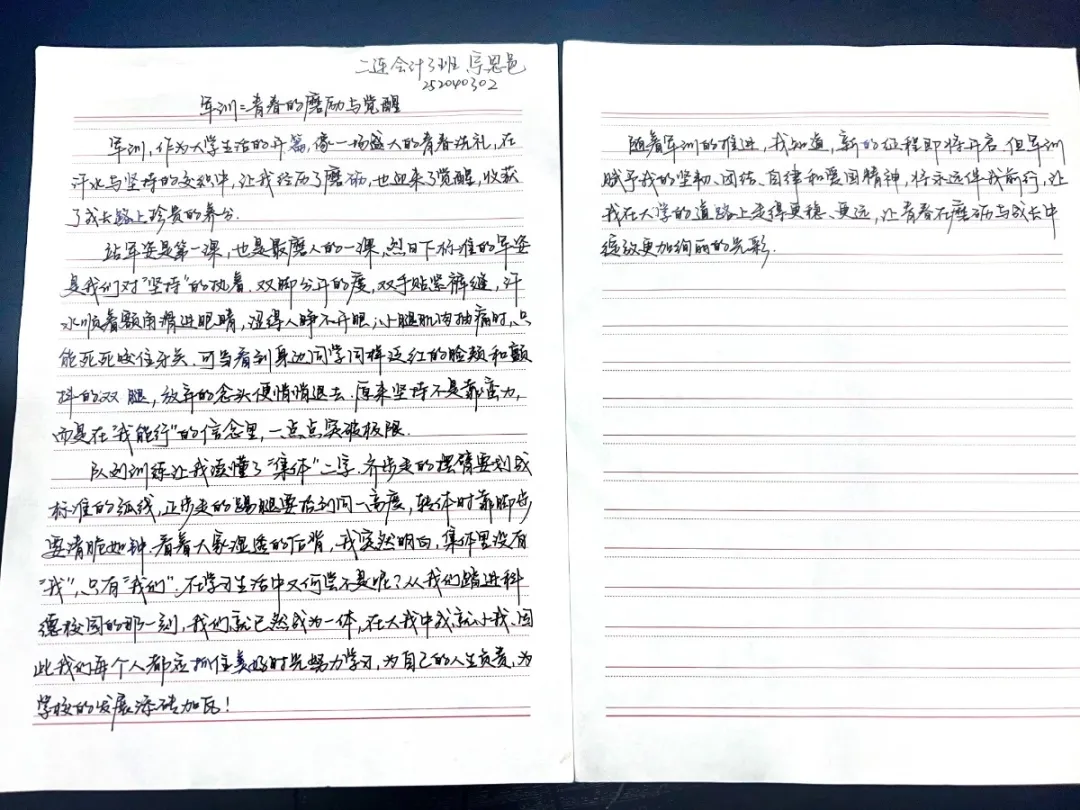 二连会计3班 辜思邑
252040302
军训：青春的磨励与觉醒
军训，作为大学生活的开篇，像一场盛大的青春洗礼，在
汗水与坚持的交织中，让我经历了磨砺，也迎来了觉醒，收获
了成长路上珍贵的养分．
站军姿是第一课，也是最磨人的一课，烈日下标准的军姿
是我们对“坚持”的执着．双脚分开的度，双手贴紧裤缝，汗
水顺着额角滑进眼睛，涩得人睁不开眼，小腿肌肉抽痛时，只
能死死咬住牙关．可当看到身边同学同样泛红的脸颊和颤
抖的双腿，放弃的念头便悄悄退去．原来坚持不是靠蛮力，
而是在“我能行”的信念里，一点点突破极限．
队列训练让我读懂了“集体”二字．齐步走的摆臂要划成
标准的弧线，正步走的踢腿要抬到同一高度，转体时靠脚步
要清脆如钟．看着大家湿透的后背，我突然明白，集体里没有
“我”，只有“我们”．在学习生活中又何尝不是呢？从我们踏进科
德校园的那一刻，我们就已然成为一体，在大我中成就小我．因
此我们每个人都应抓住美好时光努力学习，为自己的人生负责，为
学校的发展添砖加瓦！
随着军训的推进，我知道，新的征程即将开启．但军训
赋予我的坚韧、团结、自律和爱国精神，将永远伴我前行，让
我在大学的道路上走得更稳、更远，让青春在磨砺与成长中
绽放更加绚丽的光彩．